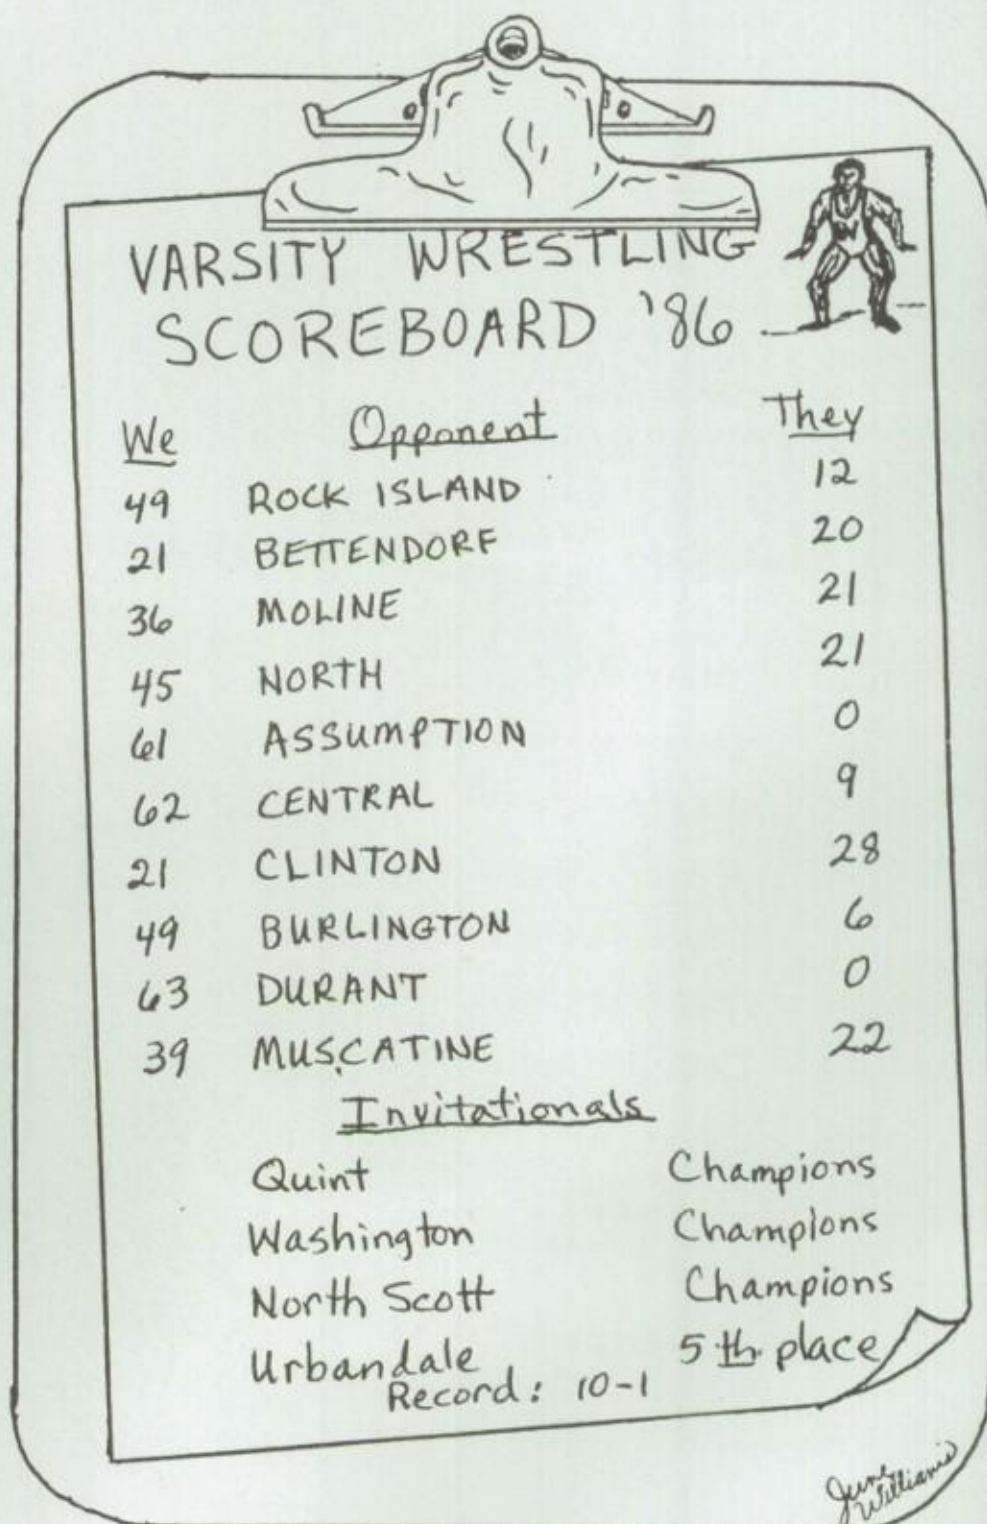 VARSITY WRESTLING
SCOREBOARD '86
W
We Opponent They
49 ROCK ISLAND 12
21 BETTENDORF 20
36 MOLINE 21
45 NORTH 21
61 ASSUMPTION 0
62 CENTRAL 9
21 CLINTON 28
49 BURLINGTON 6
63 DURANT 0
39 MUSCATINE 22
Invitationals
Quint Champions
Washington Champions
North Scott Champions
Urbandale 5th place
Record: 10-1
June
Williams